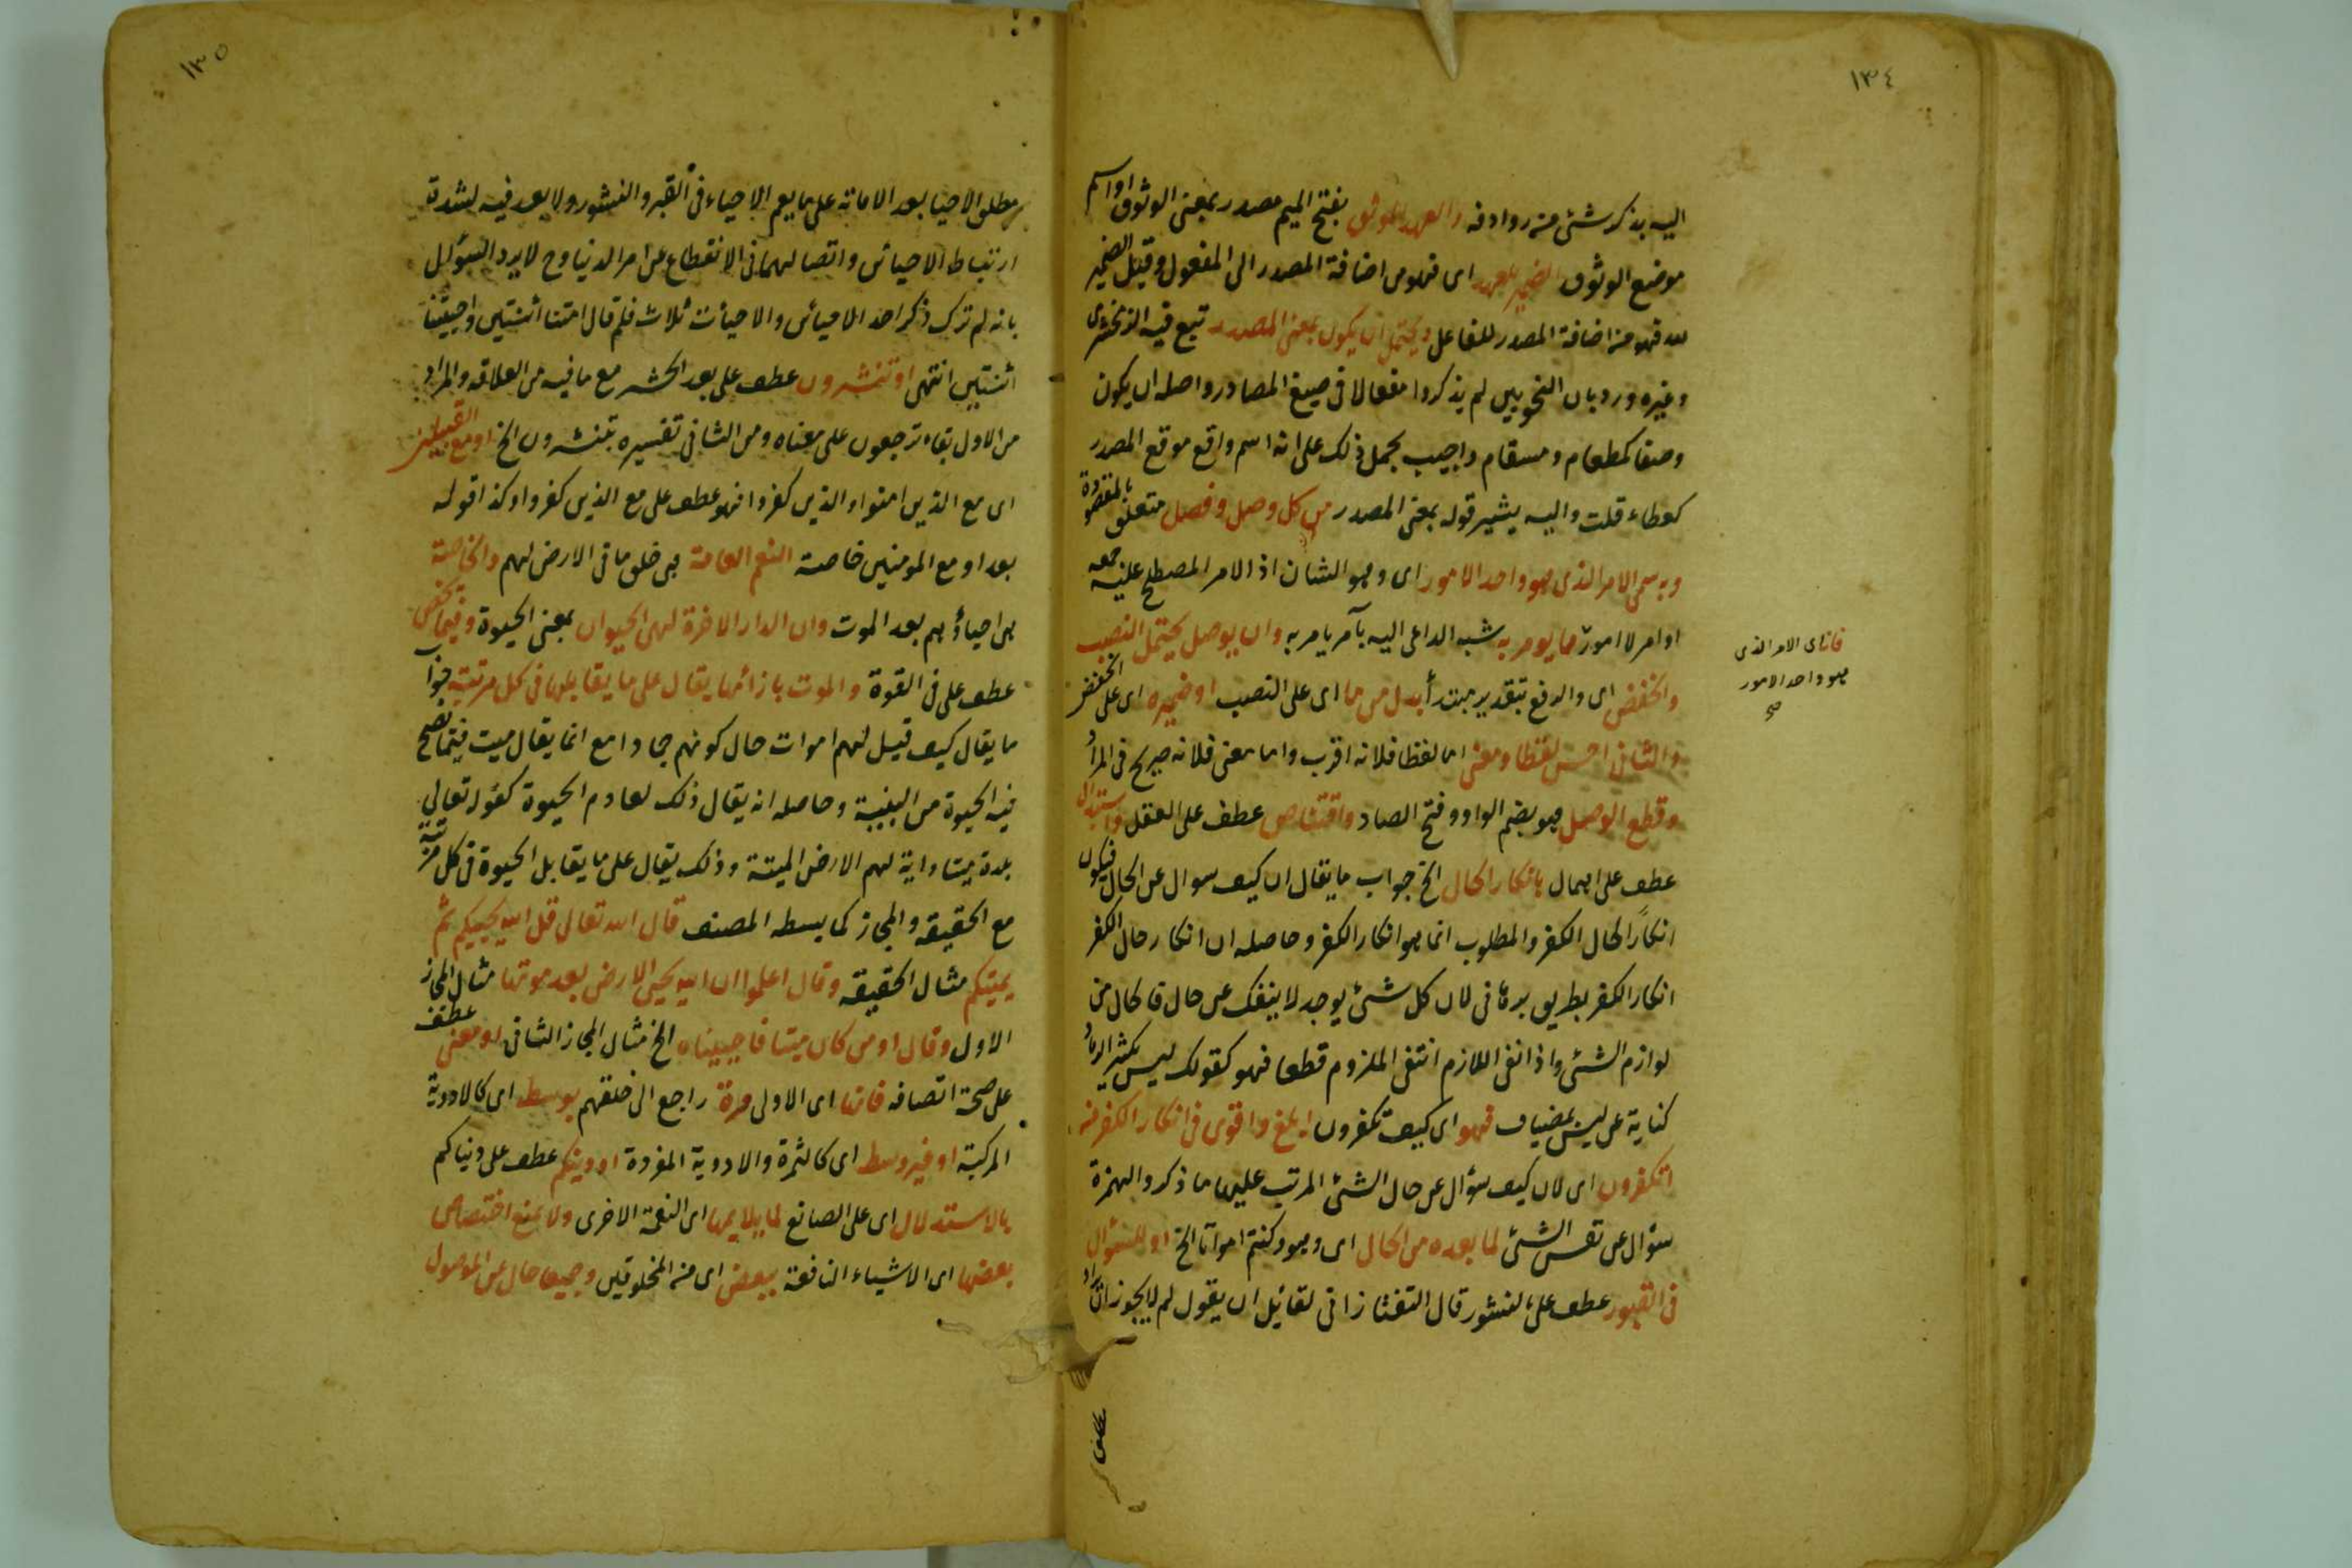 ١٣٤
اليه بذكر شئ من روادفه والعهد الموثق بفتح الميم مصدر بمعنى الوثوق او اسم
موضع الوثوق الضمير للعهد اى فهو من اضافة المصدر الى المفعول وقيل الضمير
لله فهو من اضافة المصدر للفاعل ويحتمل ان يكون بمعنى المصدر تبع فيه الزمخشرى
وغيره ورد بان النحويين لم يذكروا مفعالا فى صيغ المصادر واصله ان يكون
وصفا كمطعام ومسقام واجيب بحمل ذلك على انه اسم واقع موقع المصدر
كعطاء قلت واليه يشير قوله بمعنى المصدر من كل وصل وفصل متعلق بالمقصودة
وبه سمى الامر الذى هو واحد الامور اى وهو الشان اذ الامر المصطلح عليه جمعه
اوامر لا امور مما يومر به شبه الداعى اليه بآمر يامر به وان يوصل يحتمل النصب
فانه اى الامر الذى
هو واحد الامور
صح
والخفض اى والرفع بتقدير مبتدأ بدل من ما اى على النصب او ضميره اى على الخفض
والثانى احسن لفظا ومعنى اما لفظا فلانه اقرب واما معنى فلانه صريح فى المراد
وقطع الوصل هو بضم الواو وفتح الصاد واقتناص عطف على العقل واستبدال
عطف على اهمال بانكار الحال الخ جواب ما يقال ان كيف سوال عن الحال فيكون
انكارا لحال الكفر والمطلوب انما هو انكار الكفر وحاصله ان انكار حال الكفر
انكار الكفر بطريق برهانى لان كل شئ يوجد لا ينفك عن حال فالحال من
لوازم الشئ واذا انفى اللازم انتفى الملزوم قطعا فهو كقولك ليس بكثير الرماد
كناية عن ليس بمضياف فهو اى كيف تكفرون ابلغ واقوى فى انكار الكفر من
اتكفرون اى لان كيف سؤال عن حال الشئ المرتب عليها ما ذكر والهمزة
سؤال عن نفس الشئ لما بعده من الحال اى وهو وكنتم امواتا الخ او للسؤال
فى القبور عطف على لنشور قال التفتازانى لقائل ان يقول لم لا يجوز ان يراد
١٣٥
مطلق الاحيا بعد الاماتة على ما يعم الاحياء فى القبر والنشور ولا بعد فيه لشدة
ارتباط الاحيائين واتصالهما فى الانقطاع عن امر الدنيا وح لا يرد السؤال
بانه لم ترك ذكر احد الاحيائين والاحيأت ثلاث فلم قال امتنا اثنتين واحييتنا
اثنتين انتهى او تنشرون عطف على بعد الحشر مع ما فيه من العلاقه والمراد
من الاول بقاء ترجعون على معناه ومن الثانى تفسيره بتنشرون الخ او مع القبيلين
اى مع الذين امنوا والذين كفروا فهو عطف على مع الذين كفروا وكذا قوله
بعد او مع المومنين خاصة النعم العامة هى خلق ما فى الارض لهم والخاصة
هى احياؤهم بعد الموت وان الدار الاخرة لهى الحيوان بمعنى الحيوة وفيما يخص
عطف على فى القوة والموت بازائها يقال على ما يقابلها فى كل مرتبة جواب
ما يقال كيف قيل لهم اموات حال كونهم جمادا مع انما يقال ميت فيما تصح
فيه الحيوة من البنية وحاصله انه يقال ذلك لعادم الحيوة كقوله تعالى
بلدة ميتا واية لهم الارض الميتة وذلك يقال على ما يقابل الحيوة فى كل مرتبة
مع الحقيقه والمجاز كما بسطه المصنف قال الله تعالى قل الله يحييكم ثم
يميتكم مثال الحقيقه وقال اعلموا ان الله يحيى الارض بعد موتها مثال المجاز
الاول وقال او من كان ميتا فاحييناه الخ مثال المجاز الثانى او معنى عطف
على صحة اتصافه فانها اى الاولى مرة راجع الى خلقهم بوسط اى كالادوية
المركبة او غير وسط اى كالثمرة والادوية المفردة او دينكم عطف على دنياكم
بالاستدلال اى على الصانع لما يلايمها اى النعمة الاخرى ولا يمنع اختصاص
بعضها اى الاشياء النافعة ببعض اى من المخلوقين وجميعا حال من الموصول